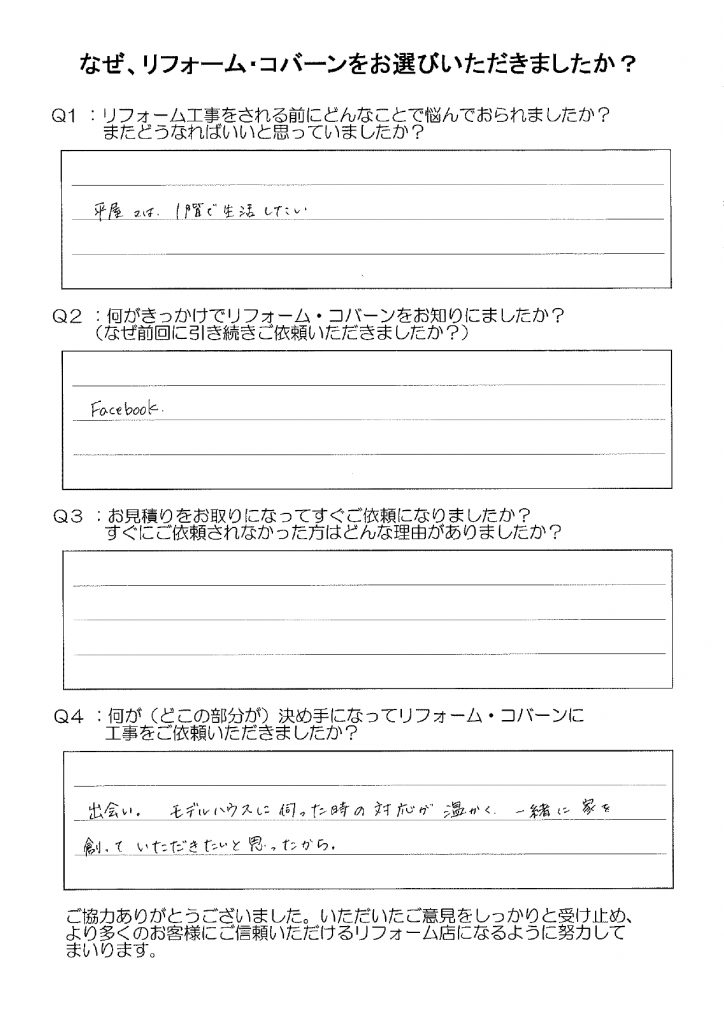 なぜ、リフォーム・コバーンをお選びいただきましたか？
Q1 ：リフォーム工事をされる前にどんなことで悩んでおられましたか？
またどうなればいいと思っていましたか？
平屋又は、1階で生活したい
Q2 ：何がきっかけでリフォーム・コバーンをお知りにましたか？
（なぜ前回に引き続きご依頼いただきましたか？）
Facebook.
Q3 ：お見積りをお取りになってすぐご依頼になりましたか？
すぐにご依頼されなかった方はどんな理由がありましたか？
Q4 ：何が（どこの部分が）決め手になってリフォーム・コバーンに
工事をご依頼いただきましたか？
出会い。 モデルハウスに伺った時の対応が温かく、一緒に家を
創っていただきたいと思ったから。
ご協力ありがとうございました。いただいたご意見をしっかりと受け止め、
より多くのお客様にご信頼いただけるリフォーム店になるように努力して
まいります。